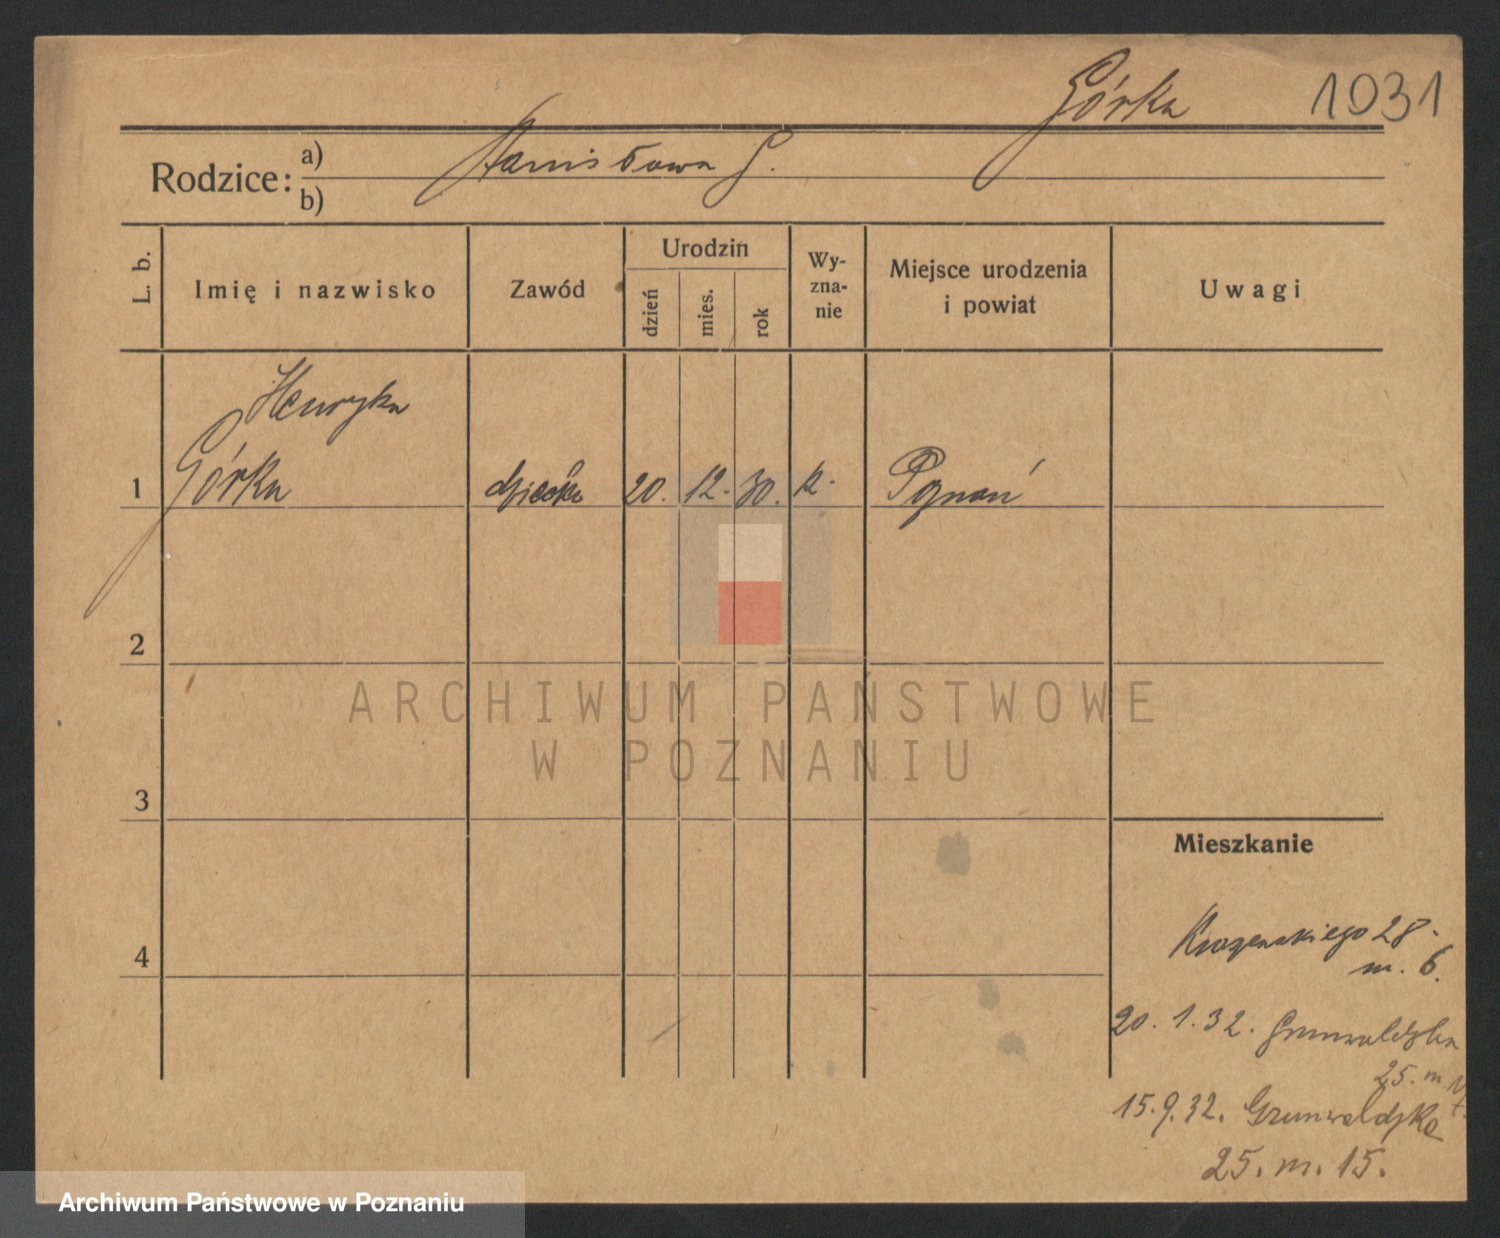 Górka 1031
Rodzice: a) Stanisława G.
b)
L. b.
Imię i nazwisko
Zawód
Urodzin
dzień
mies.
rok
Wy-
zna-
nie
Miejsce urodzenia
i powiat
Uwagi
Henryka
1 Górka dziecko 20. 12. 30. k. Poznań
2
3
4
ARCHIWUM PAŃSTWOWE
W POZNANIU
Mieszkanie
28
m. 6.
20. 1. 32. Grunwaldzka
25. m.
15. 9. 32. Grunwaldzka
25. m. 15.
Archiwum Państwowe w Poznaniu